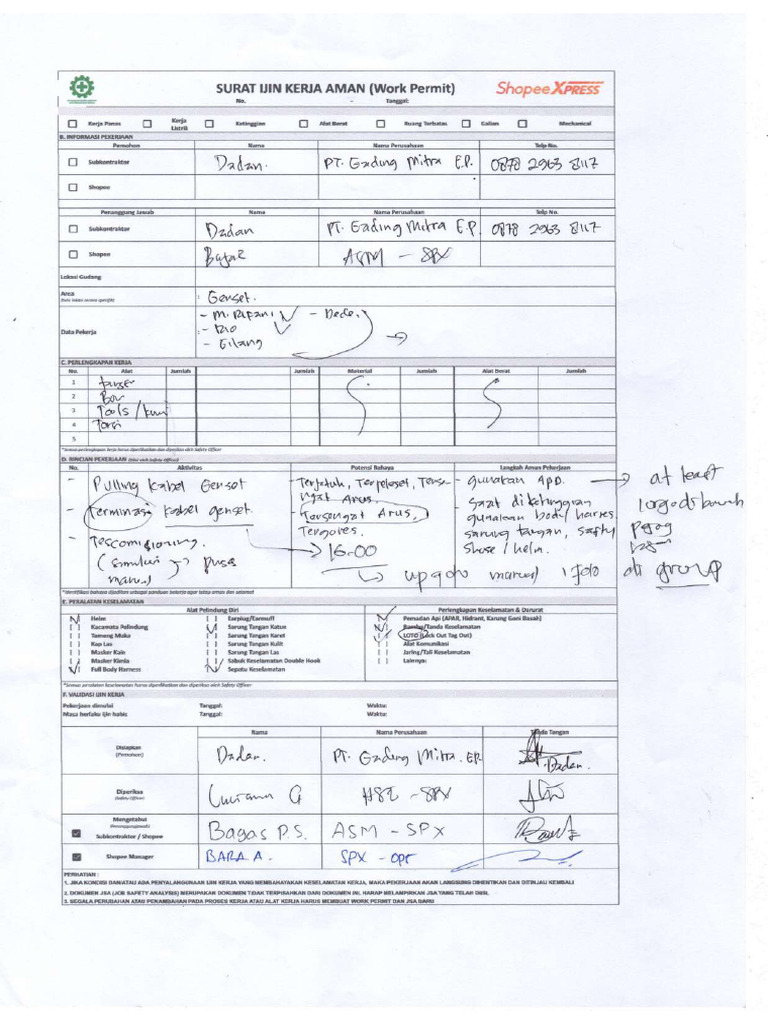 SURAT IJIN KERJA AMAN (Work Permit)
Shopee XPRESS
No. - Tanggal:
Kerja Panas Kerja Listrik Ketinggian Alat Berat Ruang Terbatas Galian Mechanical
B. INFORMASI PEKERJAAN
Pemohon Nama Nama Perusahaan Telp No.
Subkontraktor Dadan. PT. Gading Mitra E.P. 0878 2963 8117
Shopee
Penanggung Jawab Nama Nama Perusahaan Telp No.
Subkontraktor Dadan PT. Gading Mitra E.P. 0878 2963 8117
Shopee ASM - SPX
Lokasi Gudang
Area : Genset.
Data Pekerja : - M. Rifani - Dede.
- Rio
- Gilang
C. PERLENGKAPAN KERJA
No. Alat Jumlah Jumlah Material Jumlah Alat Berat Jumlah
1
2 Bor
3 Tools /
4
5
*Semua perlengkapan kerja harus diperlihatkan dan diperiksa oleh Safety Officer
D. RINCIAN PEKERJAAN (Diisi oleh Safety Officer)
No. Aktivitas Potensi Bahaya Langkah Aman Pekerjaan
- Pulling kabel Genset - Terjatuh, Terpeleset, Terse-ngat Arus. - gunakan APD. → at least
- Terminasi kabel genset. - Tersengat Arus, Tergores. - Saat di ketinggian gunakan body harnes, sarung tangan, safty shose/helm.
→ 16.00
→ di group
*Identifikasi bahaya dijadikan sebagai panduan bekerja agar tetap aman dan selamat
E. PERALATAN KESELAMATAN
Alat Pelindung Diri Perlengkapan Keselamatan & Darurat
Helm Earplug/Earmuff Pemadan Api (APAR, Hidrant, Karung Goni Basah)
Kacamata Pelindung Sarung Tangan Katun Rambu/Tanda Keselamatan
Tameng Muka Sarung Tangan Karet LOTO (Lock Out Tag Out)
Kap Las Sarung Tangan Kulit Alat Komunikasi
Masker Kain Sarung Tangan Las Jaring/Tali Keselamatan
Masker Kimia Sabuk Keselamatan Double Hook Lainnya:
Full Body Harness Sepatu Keselamatan
*Semua peralatan keselamatan harus diperlihatkan dan diperiksa oleh Safety Officer
F. VALIDASI IJIN KERJA
Pekerjaan dimulai Tanggal: Waktu:
Masa berlaku ijin habis Tanggal: Waktu:
Nama Nama Perusahaan Tanda Tangan
Disiapkan (Pemohon) Dadan. PT. Gading Mitra. EP. Dadan.
Diperiksa (Safety Officer) HSE - SPX
Mengetahui (Penanggungjawab) Subkontraktor / Shopee Bagas P.S. ASM - SPX
Shopee Manager BARA A. SPX - opr
PERHATIAN :
1. JIKA KONDISI DAN/ATAU ADA PENYALAHGUNAAN IJIN KERJA YANG MEMBAHAYAKAN KESELAMATAN KERJA, MAKA PEKERJAAN AKAN LANGSUNG DIHENTIKAN DAN DITINJAU KEMBALI
2. DOKUMEN JSA (JOB SAFETY ANALYSIS) MERUPAKAN DOKUMEN TIDAK TERPISAHKAN DARI DOKUMEN INI, HARAP MELAMPIRKAN JSA YANG TELAH DIISI.
3. SEGALA PERUBAHAN ATAU PENAMBAHAN PADA PROSES KERJA ATAU ALAT KERJA HARUS MEMBUAT WORK PERMIT DAN JSA BARU